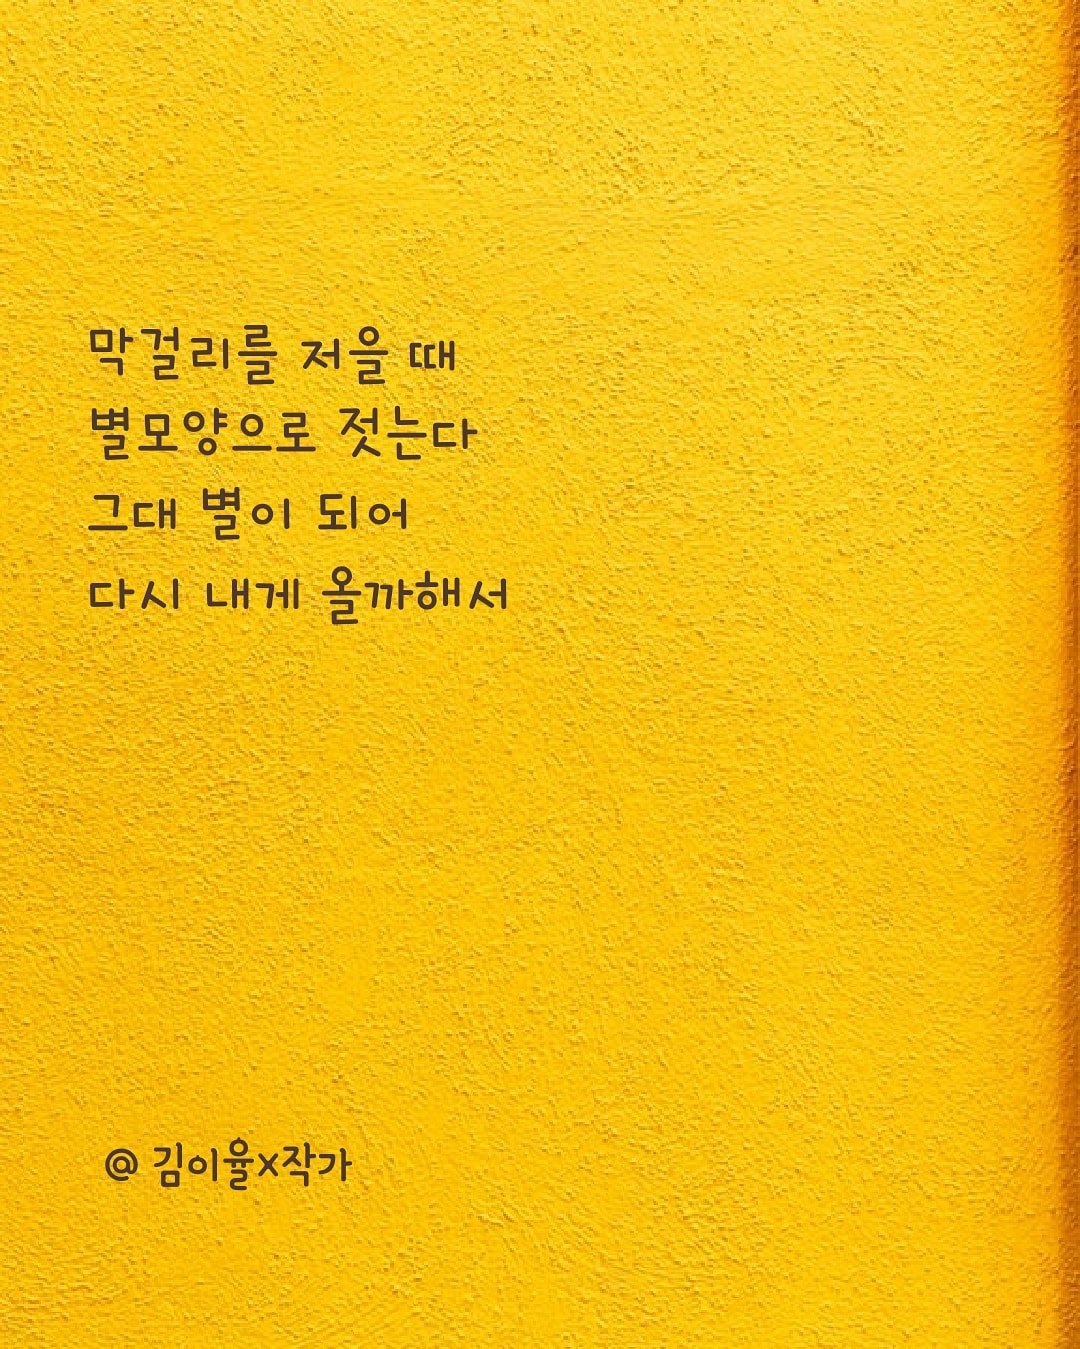 막걸리를 저을 때
별모양으로 젓는다
그대 별이 되어
다시 내게 올까해서
@ 김이율x작가